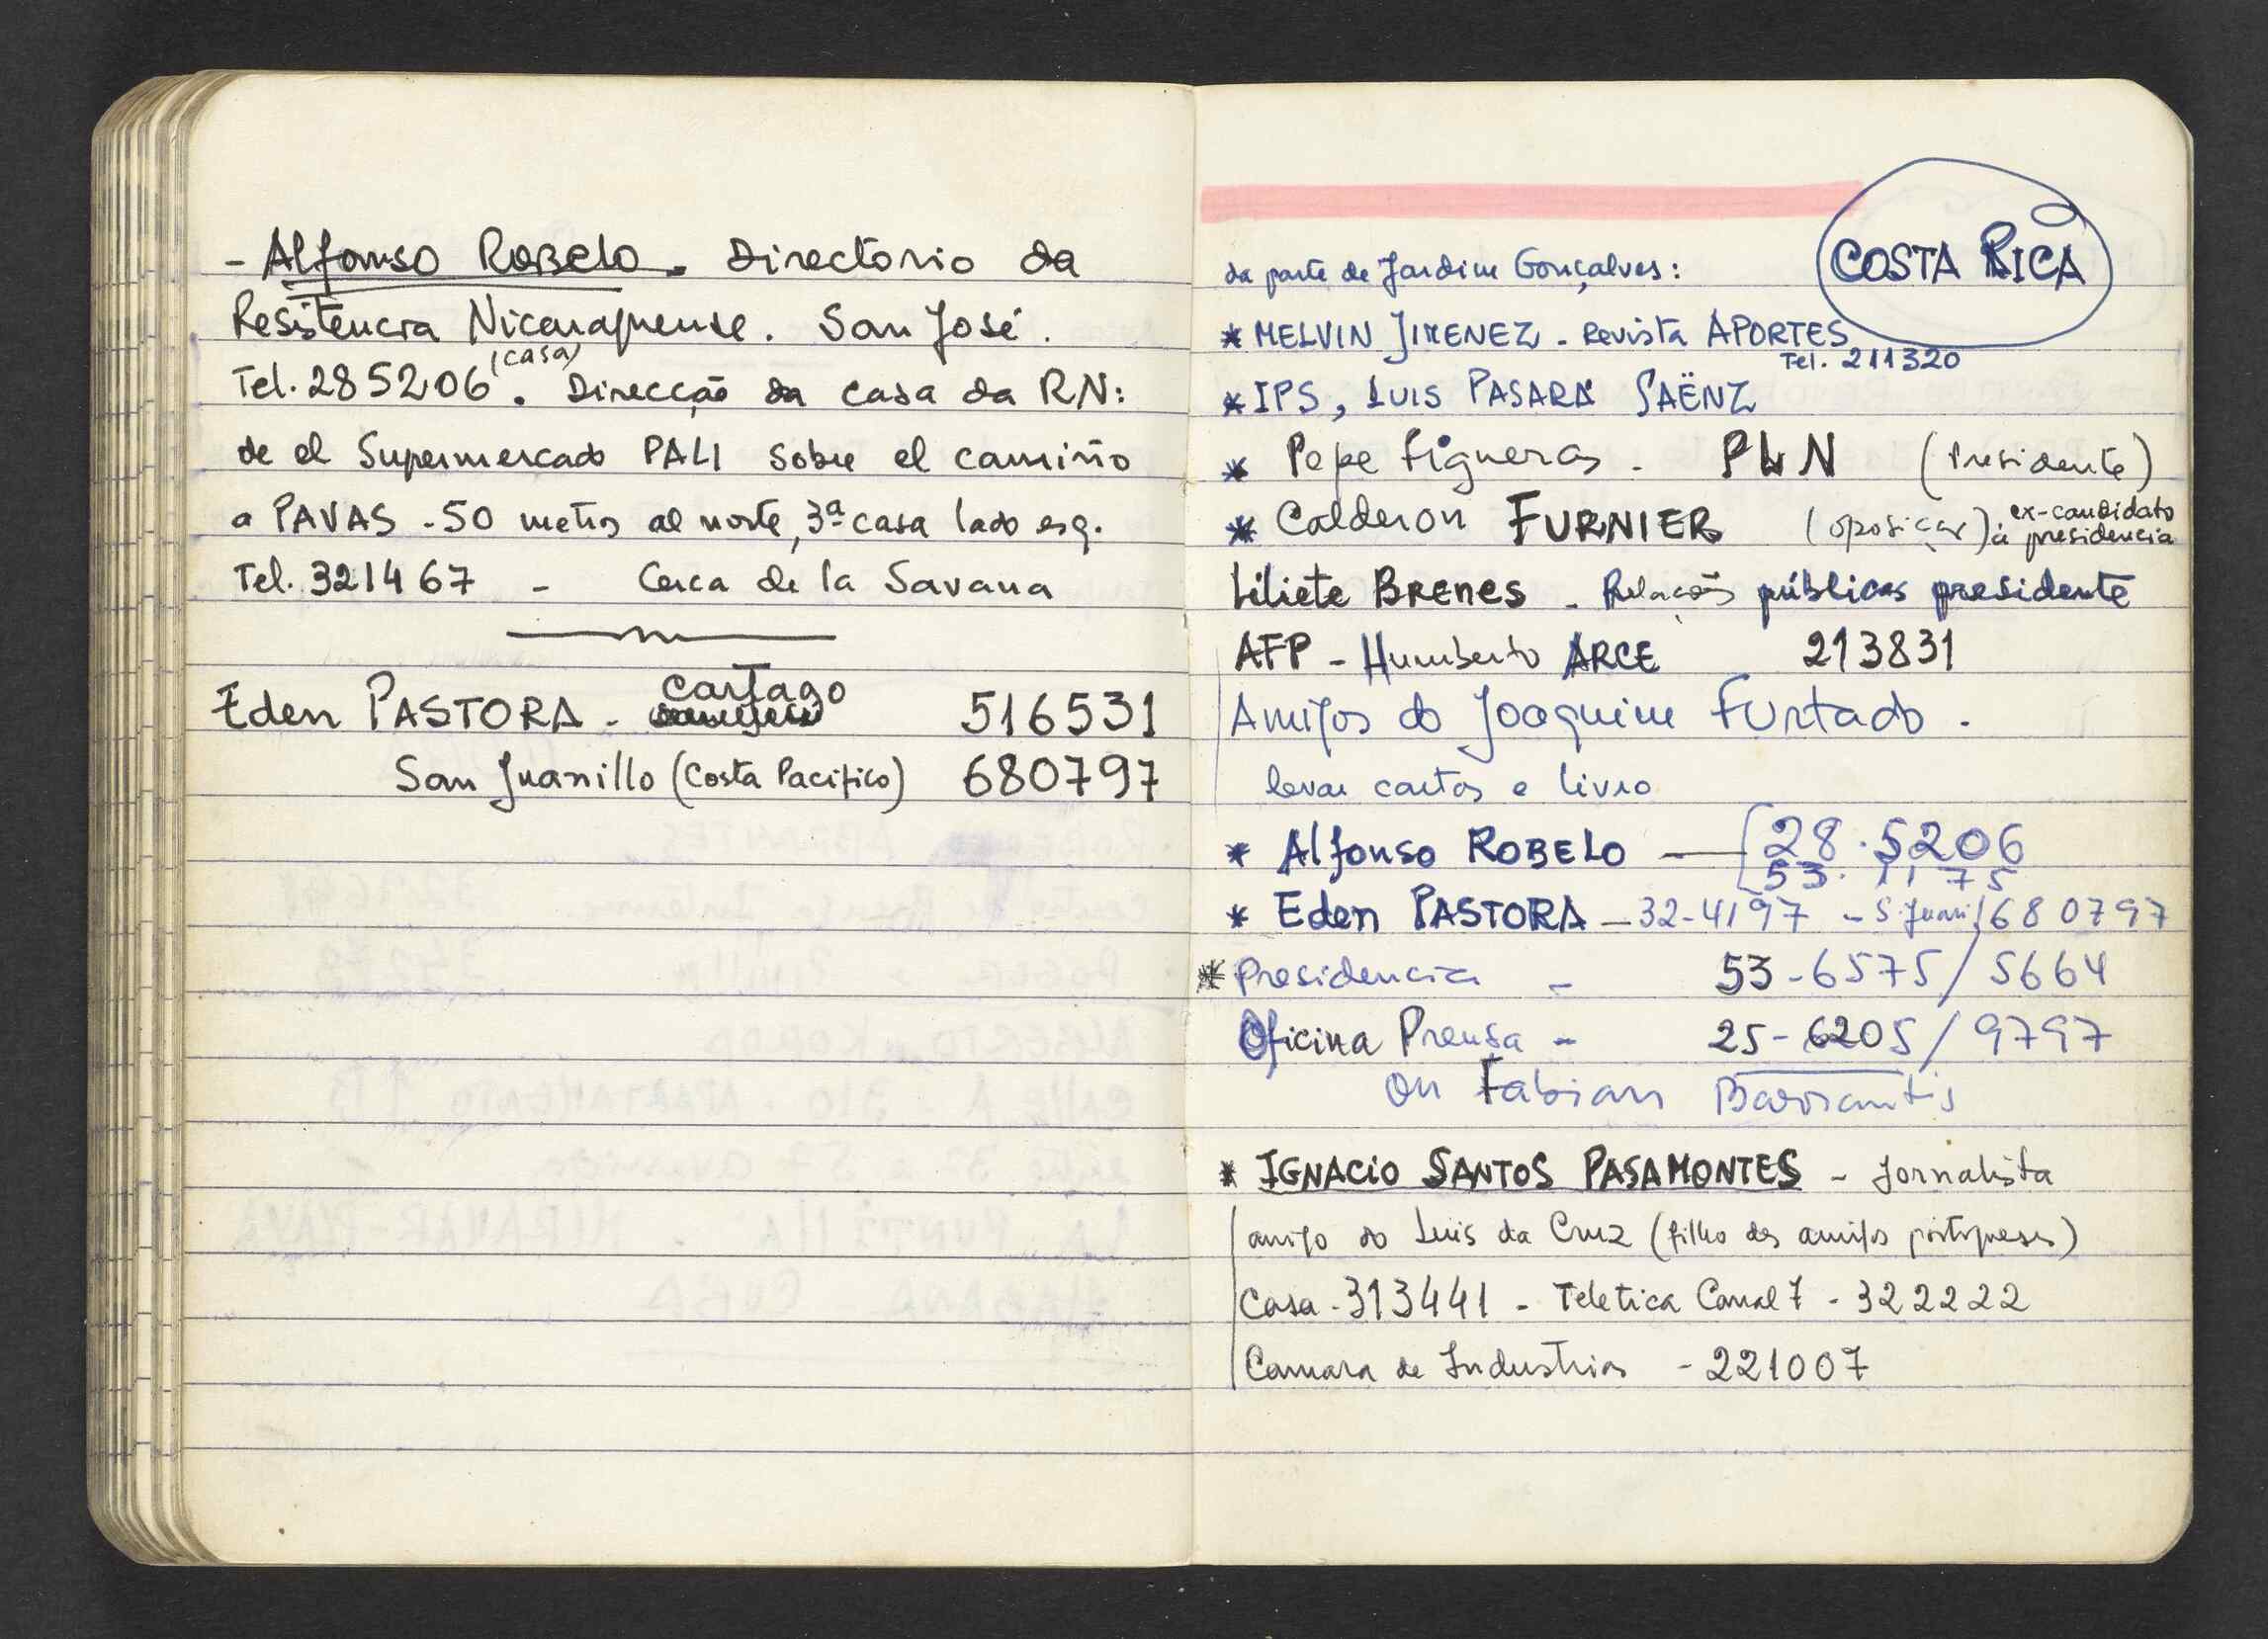 - Alfonso ROBELO. Directorio da
Resistencia Nicaraguense. San José.
Tel. 285206 (casa). Direcção da casa da RN:
de el Supermercado PALI sobre el camiño
a PAVAS - 50 metros al norte, 3ª casa lado esq.
Tel. 321467 - Cerca de la Savana
Eden PASTORA - cartago 516531
San Juanillo (Costa Pacifico) 680797
COSTA RICA
da parte de Jardim Gonçalves:
* MELVIN JIMENEZ - Revista APORTES
Tel. 211320
* IPS, LUIS PASARA SAËNZ
* Pepe Figueras - PLN (Presidente)
* Calderon FURNIER (oposição) ex-candidato
à presidencia
Liliete BRENES - Relações públicas presidente
AFP - Humberto ARCE 213831
Amigos do Joaquim Furtado.
levar cartas e livro
* Alfonso ROBELO — 28.5206
53. 11 75
* Eden PASTORA - 32-4197 - S. Juani 680797
* Presidencia - 53-6575/5664
Oficina Prensa - 25-6205/9797
ou Fabian Barrantis
* IGNACIO SANTOS PASAMONTES - Jornalista
amigo do Luis da Cruz (filho dos amigos portugueses)
Casa - 313441 - Teletica Canal 7 - 322222
Camara de Industrias - 221007